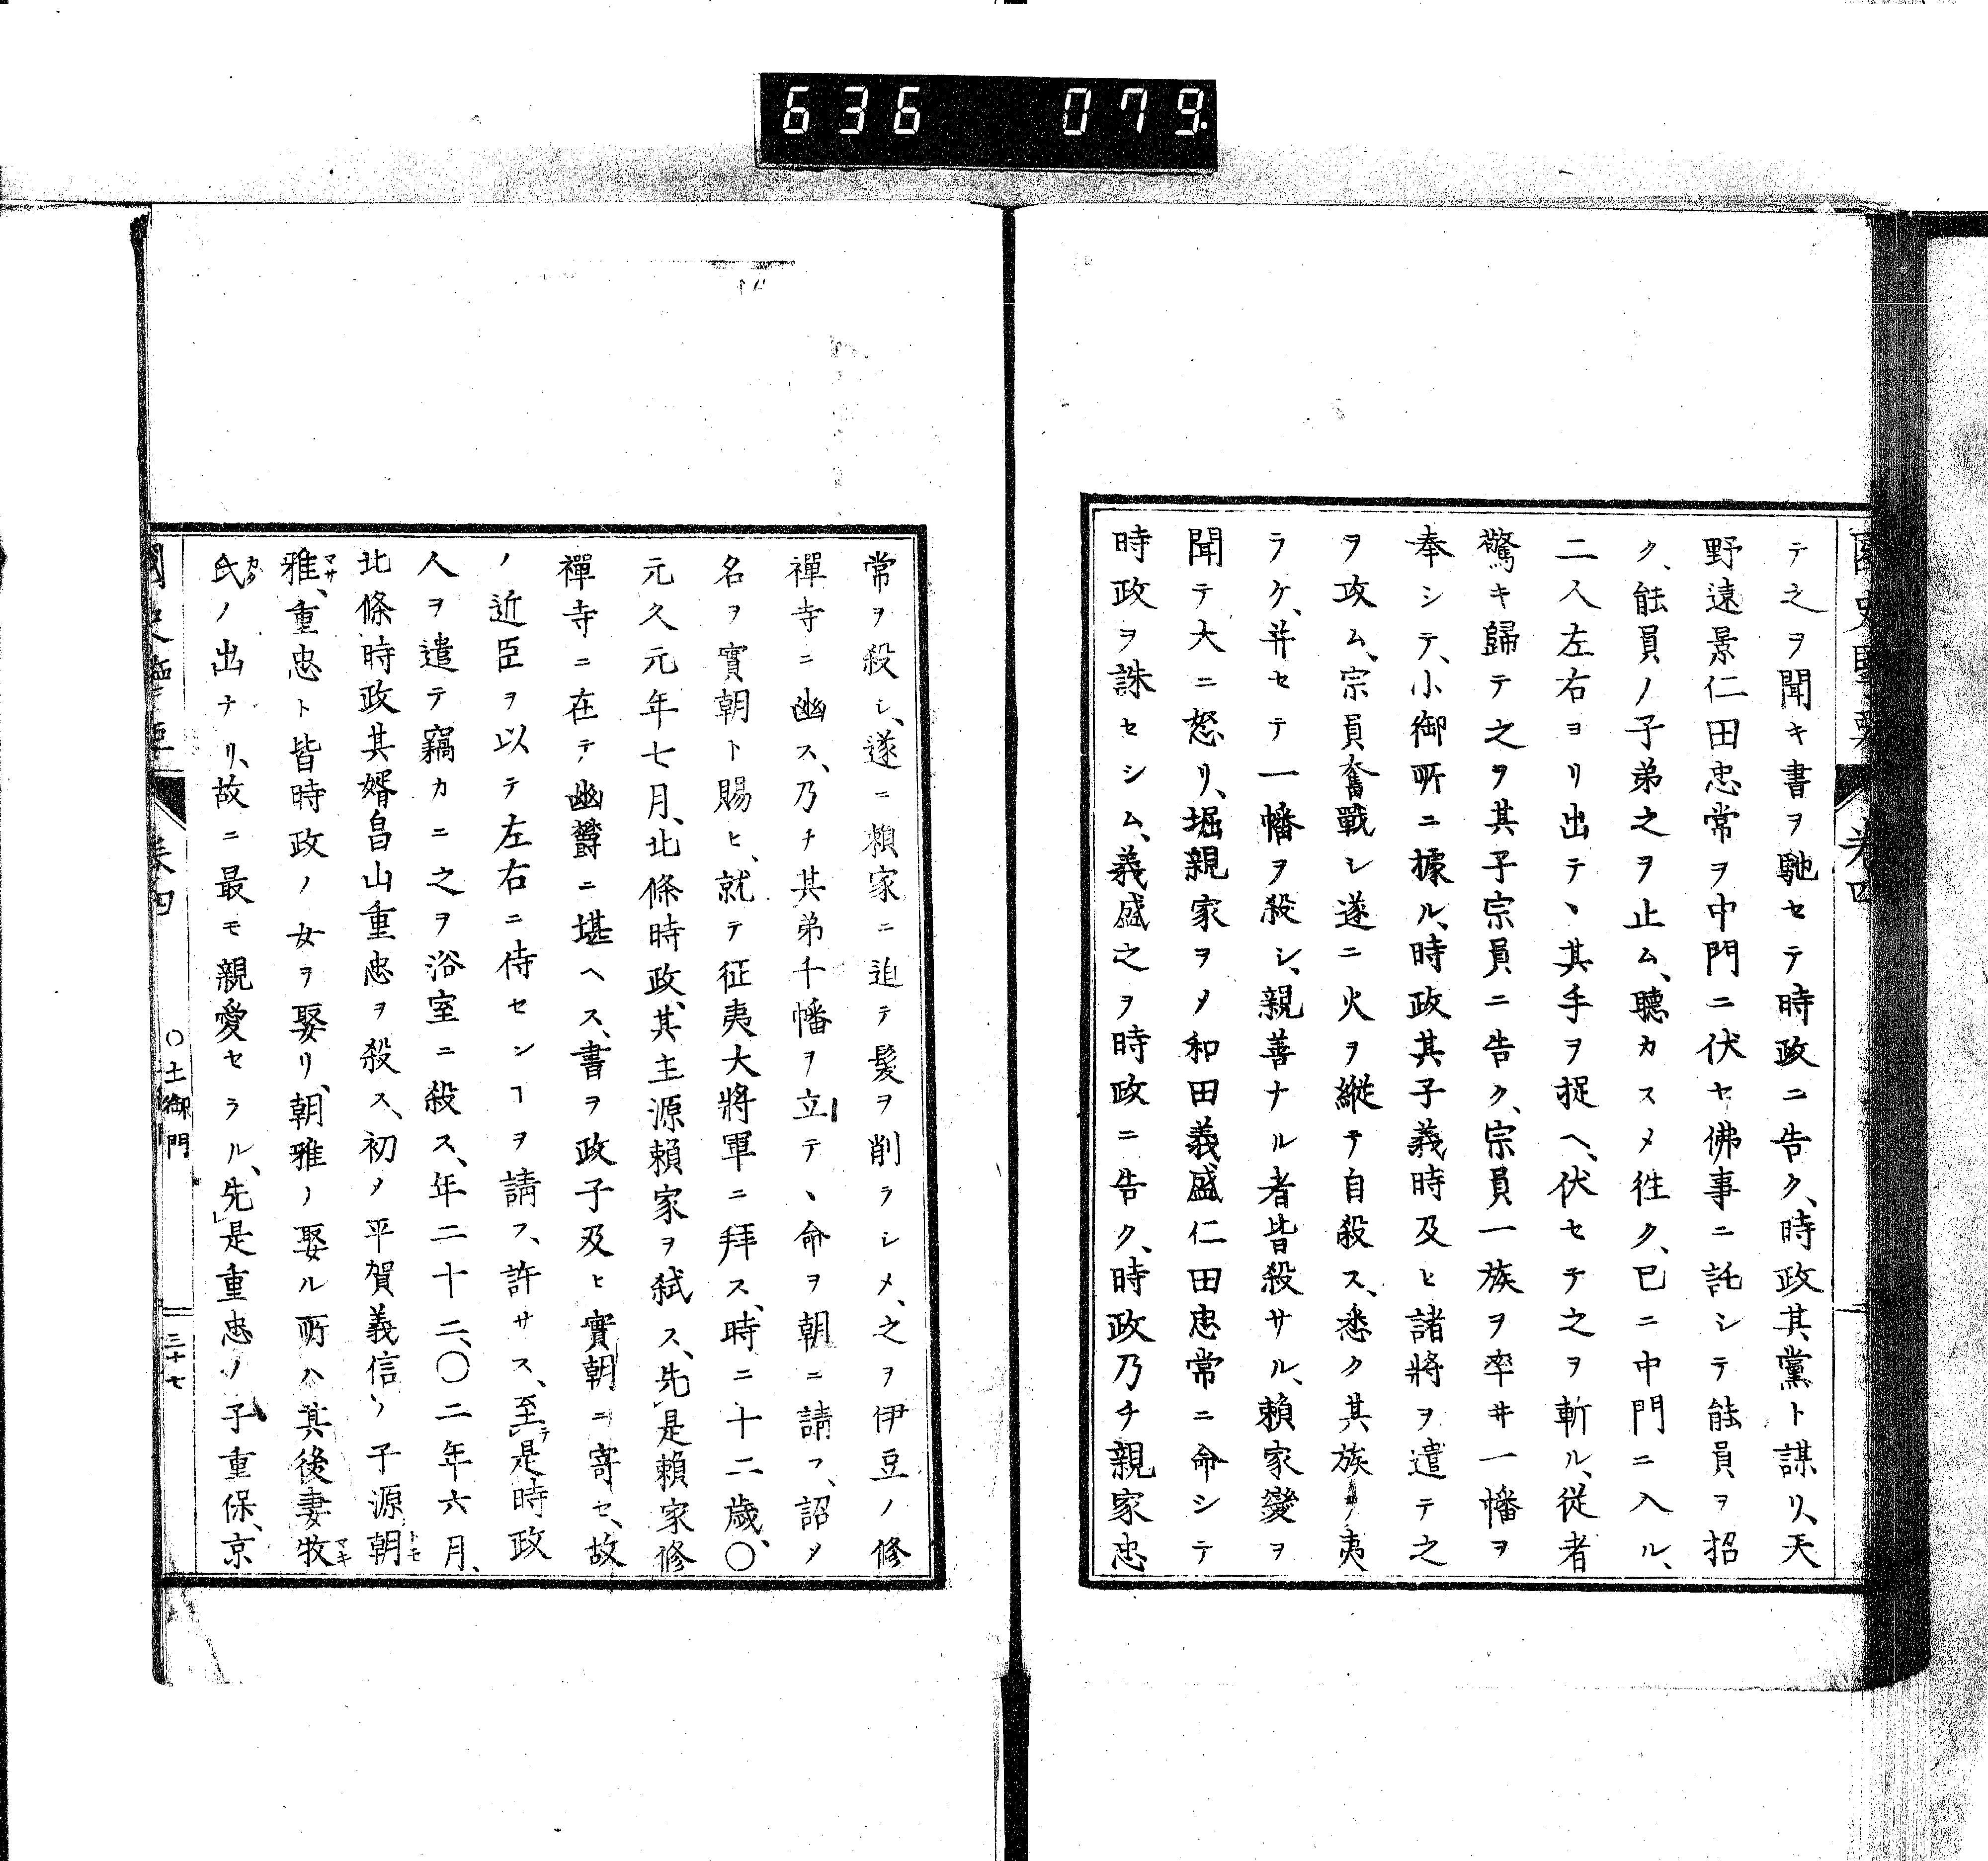 636 079
テ之ヲ聞キ書ヲ馳セテ時政ニ告ク、時政其黨ト謀リ、天
野遠景仁田忠常ヲ中門ニ伏セ佛事ニ託シテ能員ヲ招
ク、能員ノ子弟之ヲ止ム、聽カスメ徃ク、已ニ中門ニ入ル、
二人左右ヨリ出テヽ其手ヲ捉ヘ、伏セテ之ヲ斬ル、従者
驚キ歸テ之ヲ其子宗員ニ告ク、宗員一族ヲ率ヰ一幡ヲ
奉シテ、小御所ニ據ル、時政其子義時及ヒ諸將ヲ遣テ之
ヲ攻ム、宗員奮戰シ遂ニ火ヲ縱テ自殺ス、悉ク其族ヲ夷
ラケ、并セテ一幡ヲ殺シ、親善ナル者皆殺サル、賴家變ヲ
聞テ大ニ怒リ、堀親家ヲメ和田義盛仁田忠常ニ命シテ
時政ヲ誅セシム、義盛之ヲ時政ニ告ク、時政乃チ親家忠
常ヲ殺シ、遂ニ賴家ニ迫テ髮ヲ削ラシメ、之ヲ伊豆ノ修
禪寺ニ幽ス、乃チ其弟千幡ヲ立テヽ命ヲ朝ニ請フ、詔メ
名ヲ實朝ト賜ヒ、就テ征夷大將軍ニ拜ス、時ニ十二歳、〇
元久元年七月、北條時政、其主源賴家ヲ弑ス、先是賴家修
禪寺ニ在テ幽鬱ニ堪ヘス、書ヲ政子及ヒ實朝ニ寄セ、故
ノ近臣ヲ以テ左右ニ侍センヿヲ請フ、許サス、至テ是時政
人ヲ遣テ竊カニ之ヲ浴室ニ殺ス、年二十二、〇二年六月、
北條時政其婿畠山重忠ヲ殺ス、初メ平賀義信ノ子源朝トモ
雅マサ、重忠ト皆時政ノ女ヲ娶リ、朝雅ノ娶ル所ハ其後妻牧マキ
氏ノ出ナリ、故ニ最モ親愛セラル、先是重忠ノ子重保、京
卷四
〇土御門
三十七